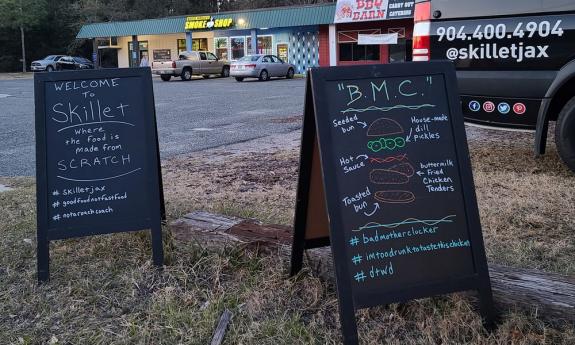 SMOKE SHOP
BBQ BARN
CARRY OUT
CATERING
904.400.4904
@skilletjax
WELCOME
TO
Skillet
Where
the food is
made from
SCRATCH
# skilletjax
# goodfoodnotfastfood
# notaroachcoach
"B.M.C."
Seeded
bun
House-made
dill
pickles
Hot
Sauce
buttermilk
Fried
Chicken
Tenders
Toasted
bun
# badmotherclucker
# imtoodrunktotastethischicken
# dtwd